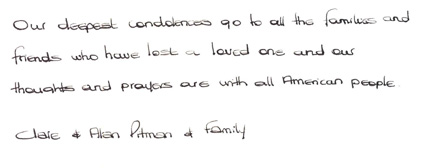 Our deepest condolences go to all the families and
friends who have lost a loved one and our
thoughts and prayers are with all American people
Clare & Allan Pitman & Family